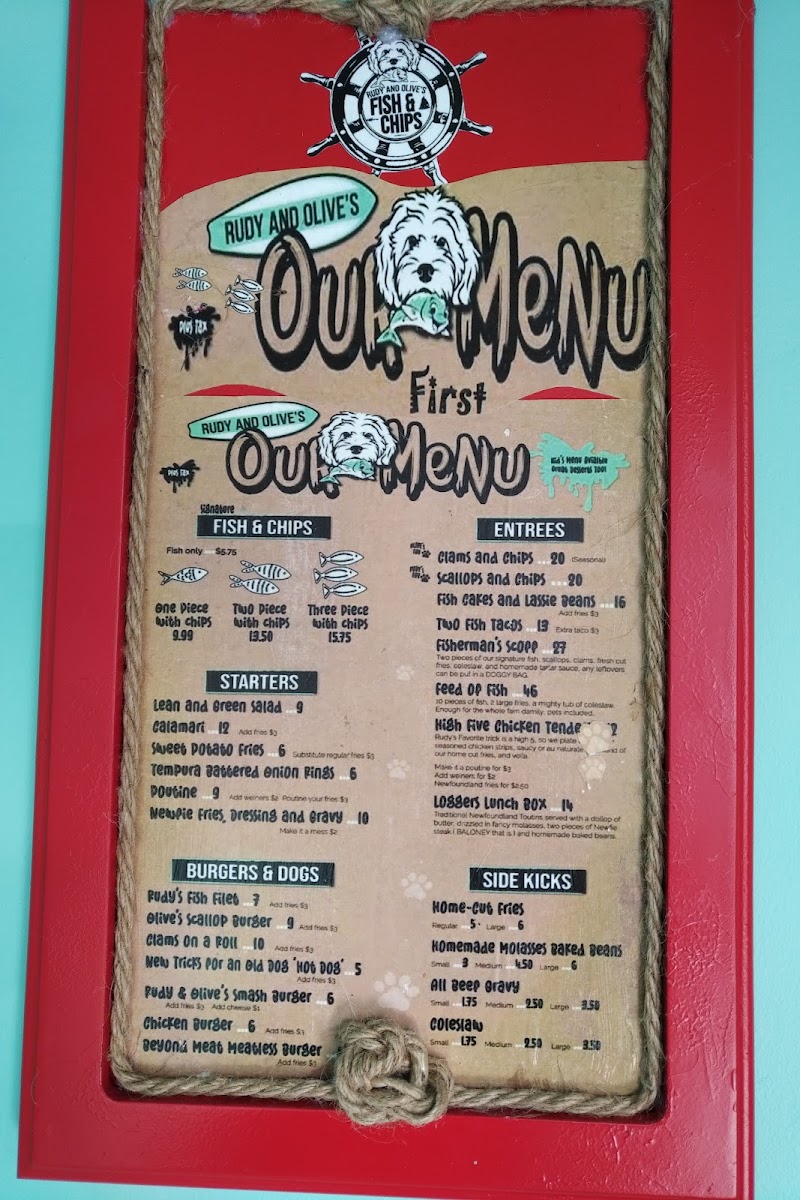 RUDY AND OLIVE'S
FISH &
CHIPS
RUDY AND OLIVE'S
Our Menu
Plus Tax
First
RUDY AND OLIVE'S
Our Menu
Plus Tax
Great Desserts Too!
Signature
FISH & CHIPS
Fish only ... $5.75
One Piece with chips 9.99
Two Piece with chips 13.50
Three Piece with chips 15.75
STARTERS
Lean and Green Salad ...9
Calamari ...12 Add fries $3
Sweet Potato Fries ...6 Substitute regular fries $3
Tempura Battered Onion Rings ...6
Poutine ...9 Add weiners $2 Poutine your fries $3
Newfie Fries, Dressing and Gravy ...10
Make it a mess $2
BURGERS & DOGS
Rudy's Fish Filet ...7 Add fries $3
Olive's Scallop Burger ...9 Add fries $3
Clams on a Roll ...10 Add fries $3
New Tricks for an Old Dog 'Hot Dog' 5
Add fries $3
Rudy & Olive's Smash Burger ...6
Add fries $3 Add cheese $1
Chicken Burger ...6 Add fries $3
Beyond Meat Meatless Burger
Add fries $3
ENTREES
Clams and Chips ...20 (Seasonal)
Scallops and Chips ...20
Fish Cakes and Lassie Beans ...16
Add fries $3
Two Fish Tacos ...13 Extra taco $3
Fisherman's Scoff ...27
Two pieces of our signature fish, scallops, clams, fresh cut
fries, coleslaw, and homemade tartar sauce, any leftovers
can be put in a DOGGY BAG.
Feed of Fish ...46
10 pieces of fish, 2 large fries, a mighty tub of coleslaw.
Enough for the whole fam damily, pets included.
High Five Chicken
Rudy's Favorite trick is a high 5, so we plate
seasoned chicken strips, saucy or au naturale, of
our home cut fries, and voila.
Make it a poutine for $3
Add weiners for $2
Newfoundland fries for $2.50
Loggers Lunch Box ...14
Traditional Newfoundland Toutins served with a dollop of
butter, drizzled in fancy molasses, two pieces of Newfie
steak ( BALONEY that is ) and homemade baked beans.
SIDE KICKS
Home-Cut Fries
Regular ...5 Large ...6
Homemade Molasses Baked Beans
Small ...3 Medium ...4.50 Large ...6
All Beef Gravy
Small ...1.75 Medium ...2.50 Large ...3.50
Coleslaw
Small ...1.75 Medium ...2.50 Large ...3.50